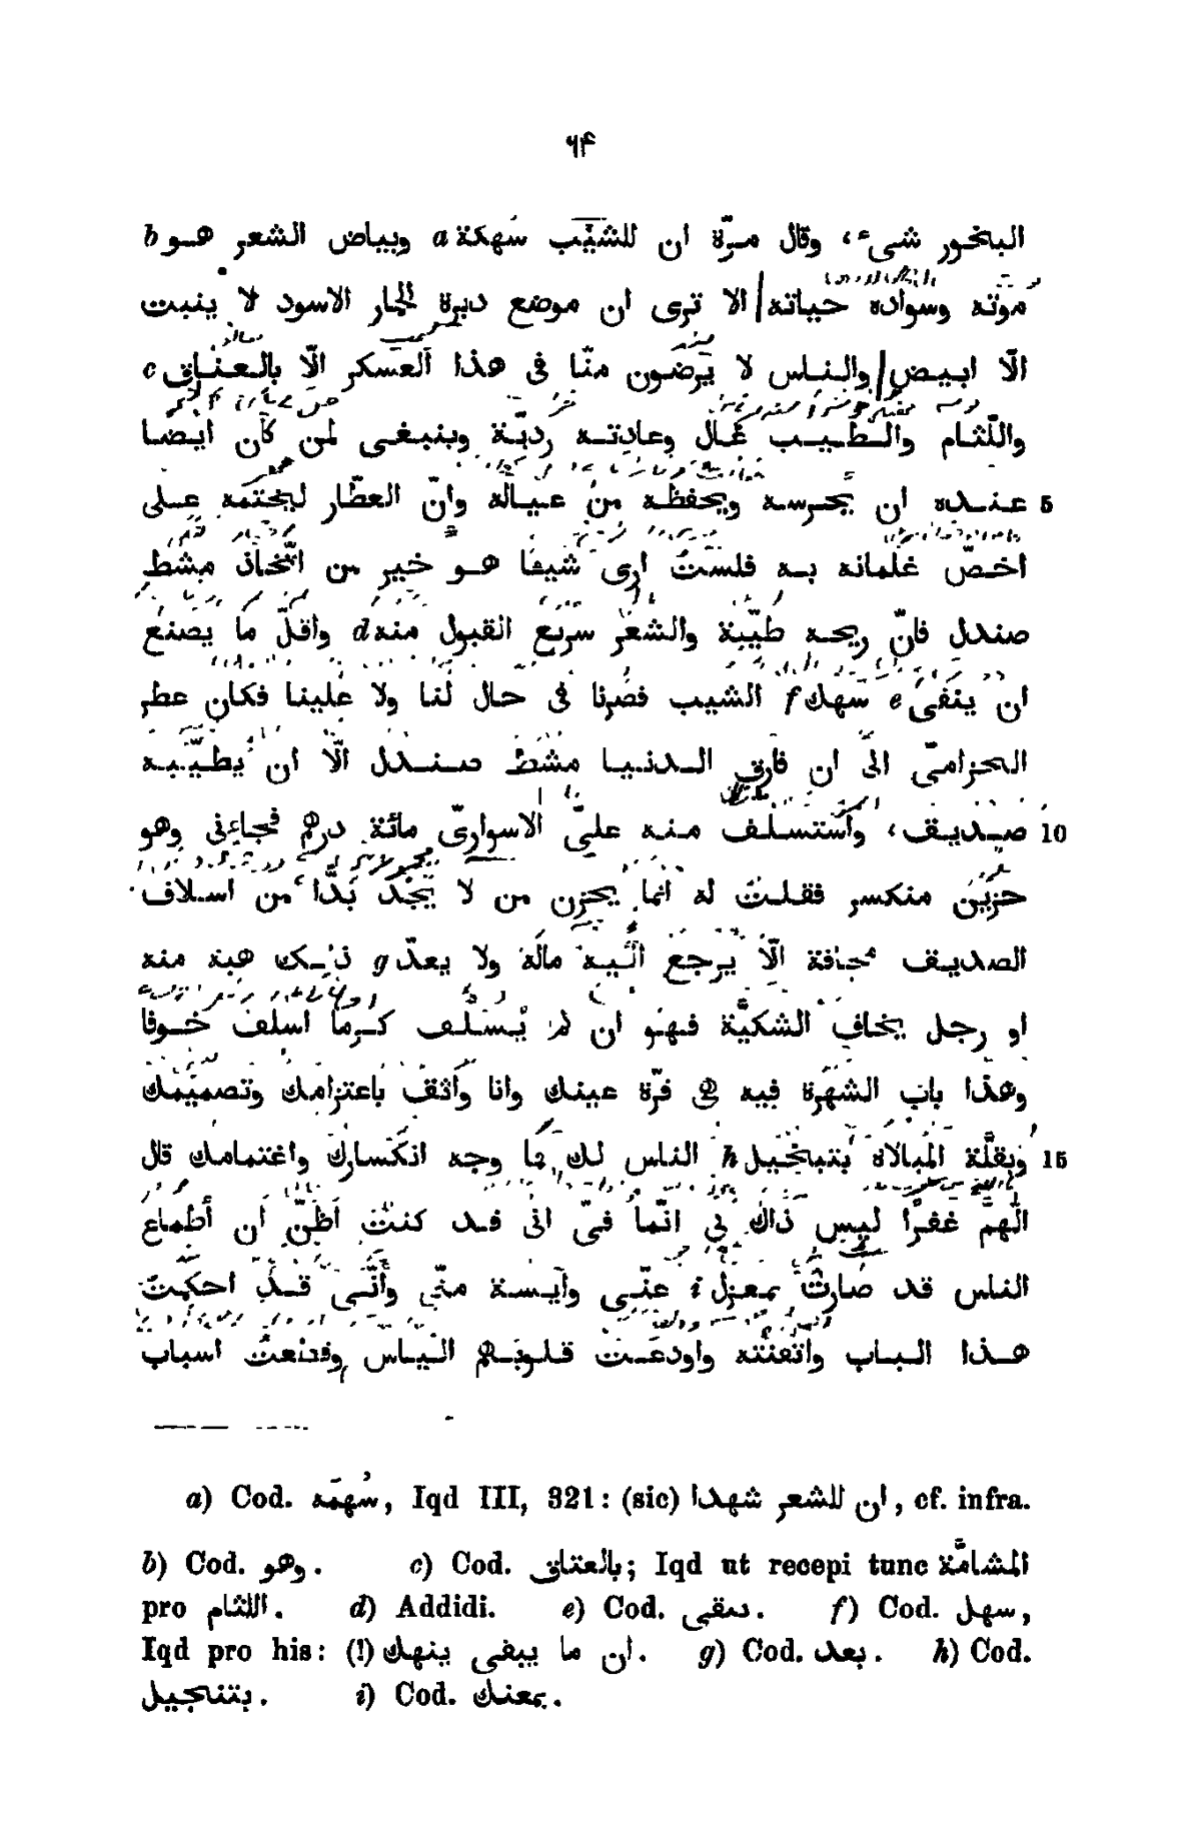 ٦٤
البخور شىء، وقال مرّة ان للشيب سهكة a وبياض الشعر هو b
موته وسواده حياته الا ترى ان موضع دبرة الحمار الاسود لا ينبت
الّا ابيض والناس لا يرضون منّا فى هذا العسكر الّا بالعناق c
واللثام والطيب غال وعادته رديّة وينبغى لمن كان ايضا
عنده ان يحرسه ويحفظه من عياله وانّ العطّار ليختمه على 5
اخصّ غلمانه به فلست ارى شيئا هو خير من اتّخاذ مشط
صندل فانّ ريحه طيّبة والشعر سريع القبول منه d واقلّ ما يصنع
ان ينفى e سهك f الشيب فصرنا فى حال لنا ولا علينا فكان عطر
الحزامىّ الى ان فارق الدنيا مشط صندل الّا ان يطيّبه
صديق، واستسلف منه علىّ الاسوارىّ مائة درهم فجاءنى وهو 10
حزين منكسر فقلت له انما يحزن من لا يجد بدّا من اسلاف
الصديق مخافة الّا يرجع اليه ماله ولا يعدّ g ذلك هبة منه
او رجل يخاف الشكيّة فهو ان لم يسلف كرما اسلف خوفا
وهذا باب الشهرة فيه هى قرّة عينك وانا واثق باعتزامك وتصميمك
وبقلّة المبالاة بتبخيل h الناس لك فما وجه انكسارك واغتمامك قال 15
اللهمّ غفرًا ليس ذاك بى انّما فىّ انى قد كنت اظنّ ان أطماع
الناس قد صارت بمعزل i عنّى وآيسة منّى وأنّى قد احكمت
هذا الباب واتقنته واودعت قلوبهم اليأس وقطعت اسباب
a) Cod. سُهمَه, Iqd III, 321: (sic) ان للشعر شهدا, cf. infra.
b) Cod. وهو. c) Cod. بالعتاق; Iqd ut recepi tunc المشامَّة
pro اللثام. d) Addidi. e) Cod. سقى. f) Cod. سهل,
Iqd pro his: (!) ان ما يبقى ينهك. g) Cod. بعد. h) Cod.
بتنجيل. i) Cod. بمعنك.